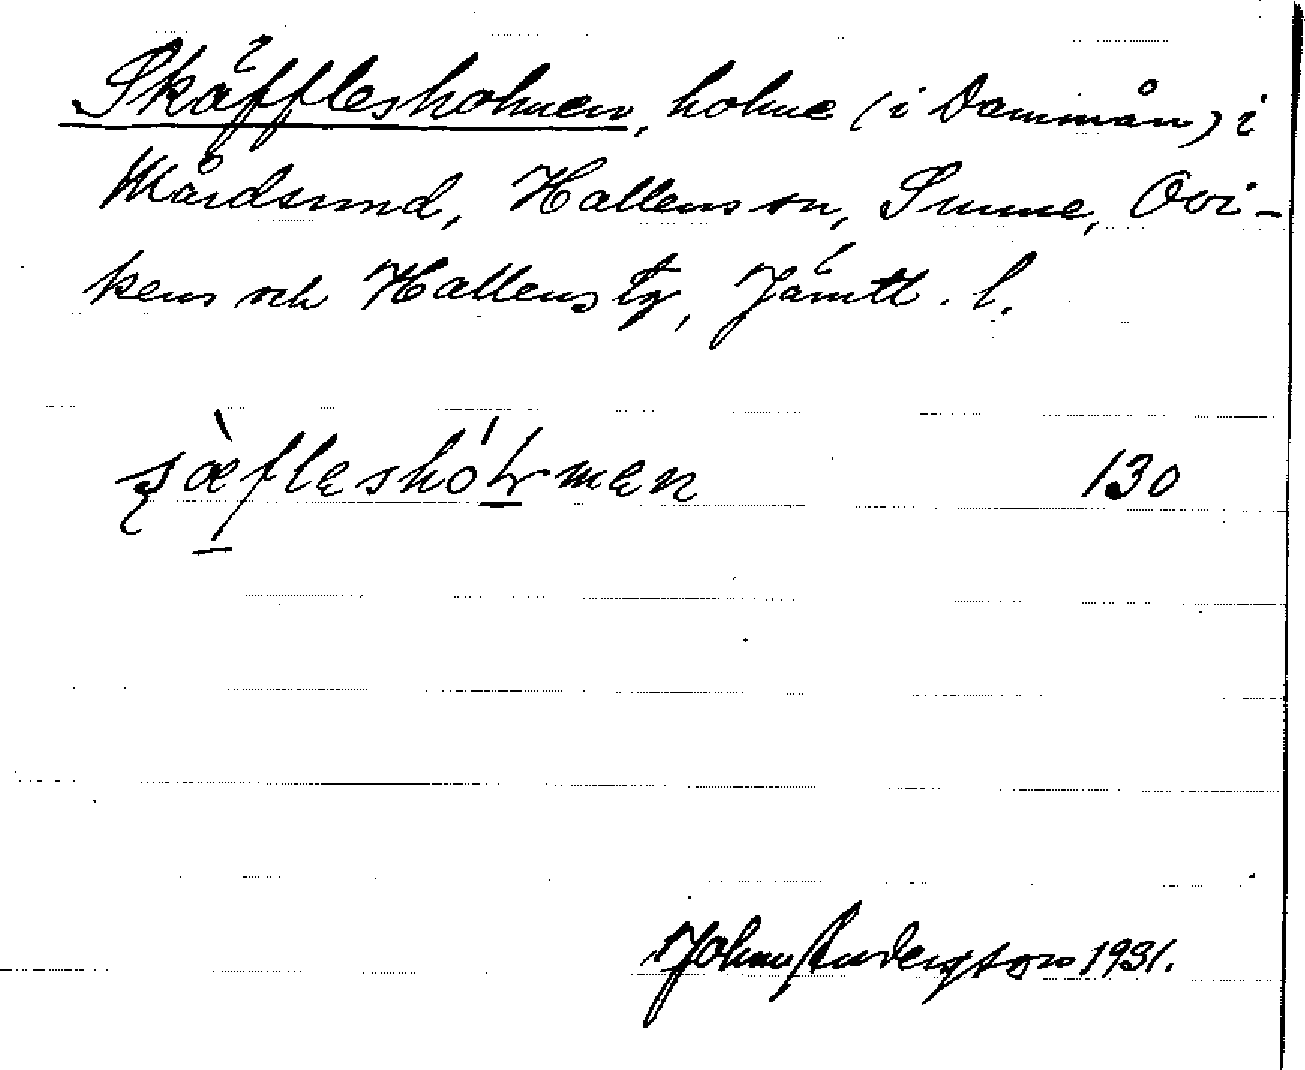 Skäfflesholmen, holme (i Dammån) i
Mårdsund, Hallens sn, Sunne, Ovi-
kens och Hallens tg, Jämtl. l.
130
John Andersson 1931.